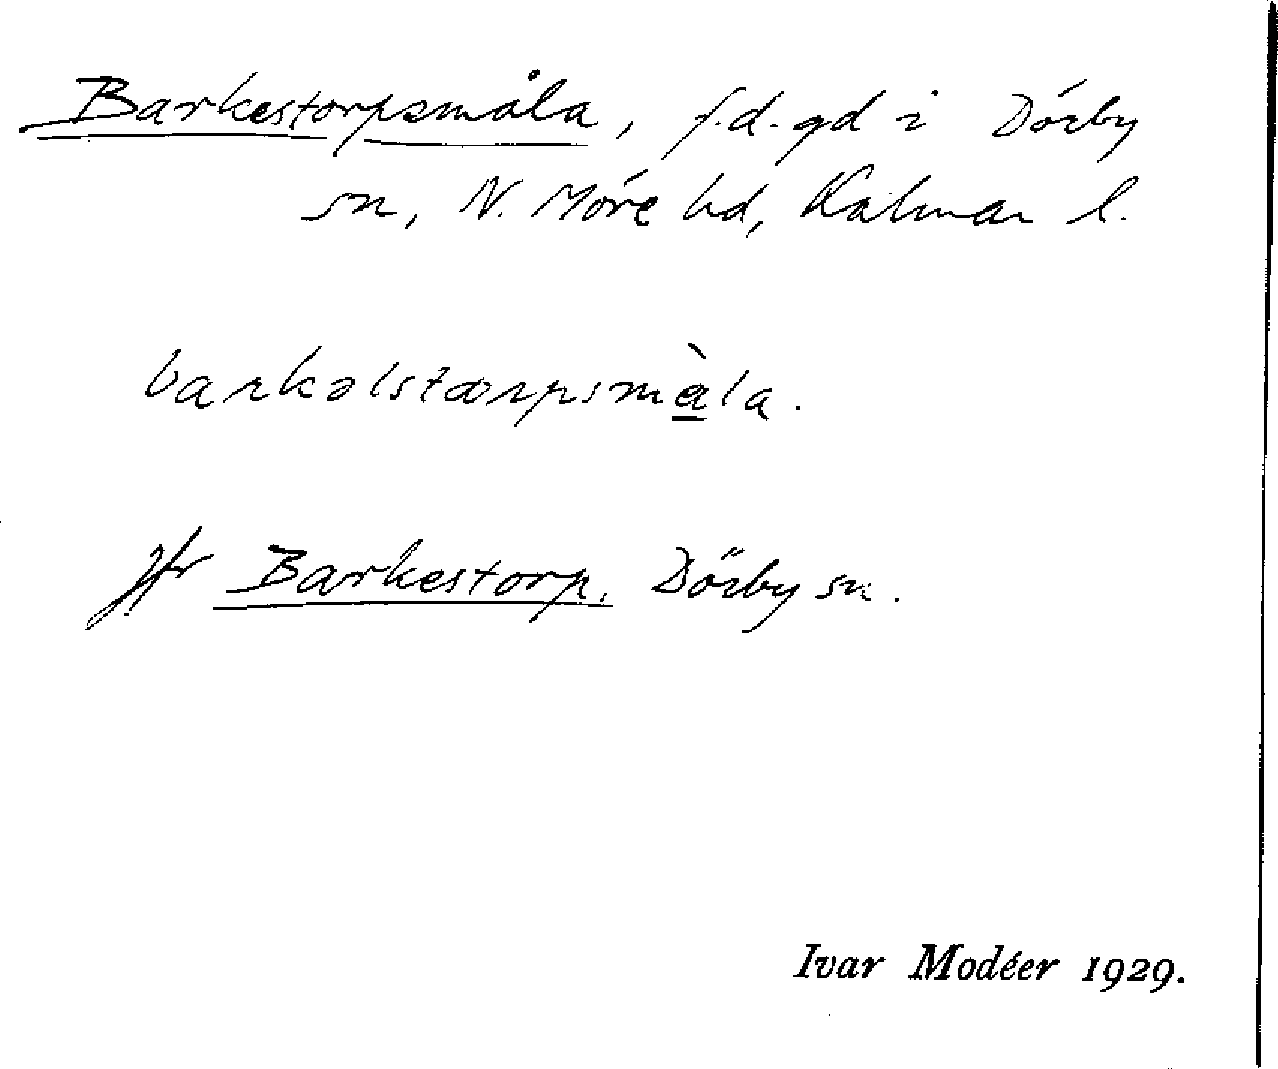 Barkestorpsmåla, f.d. gd i Dörby
sn, N. Möre hd, Kalmar l.
barkəlstærpsmàla.
Jfr Barkestorp, Dörby sn.
Ivar Modéer 1929.